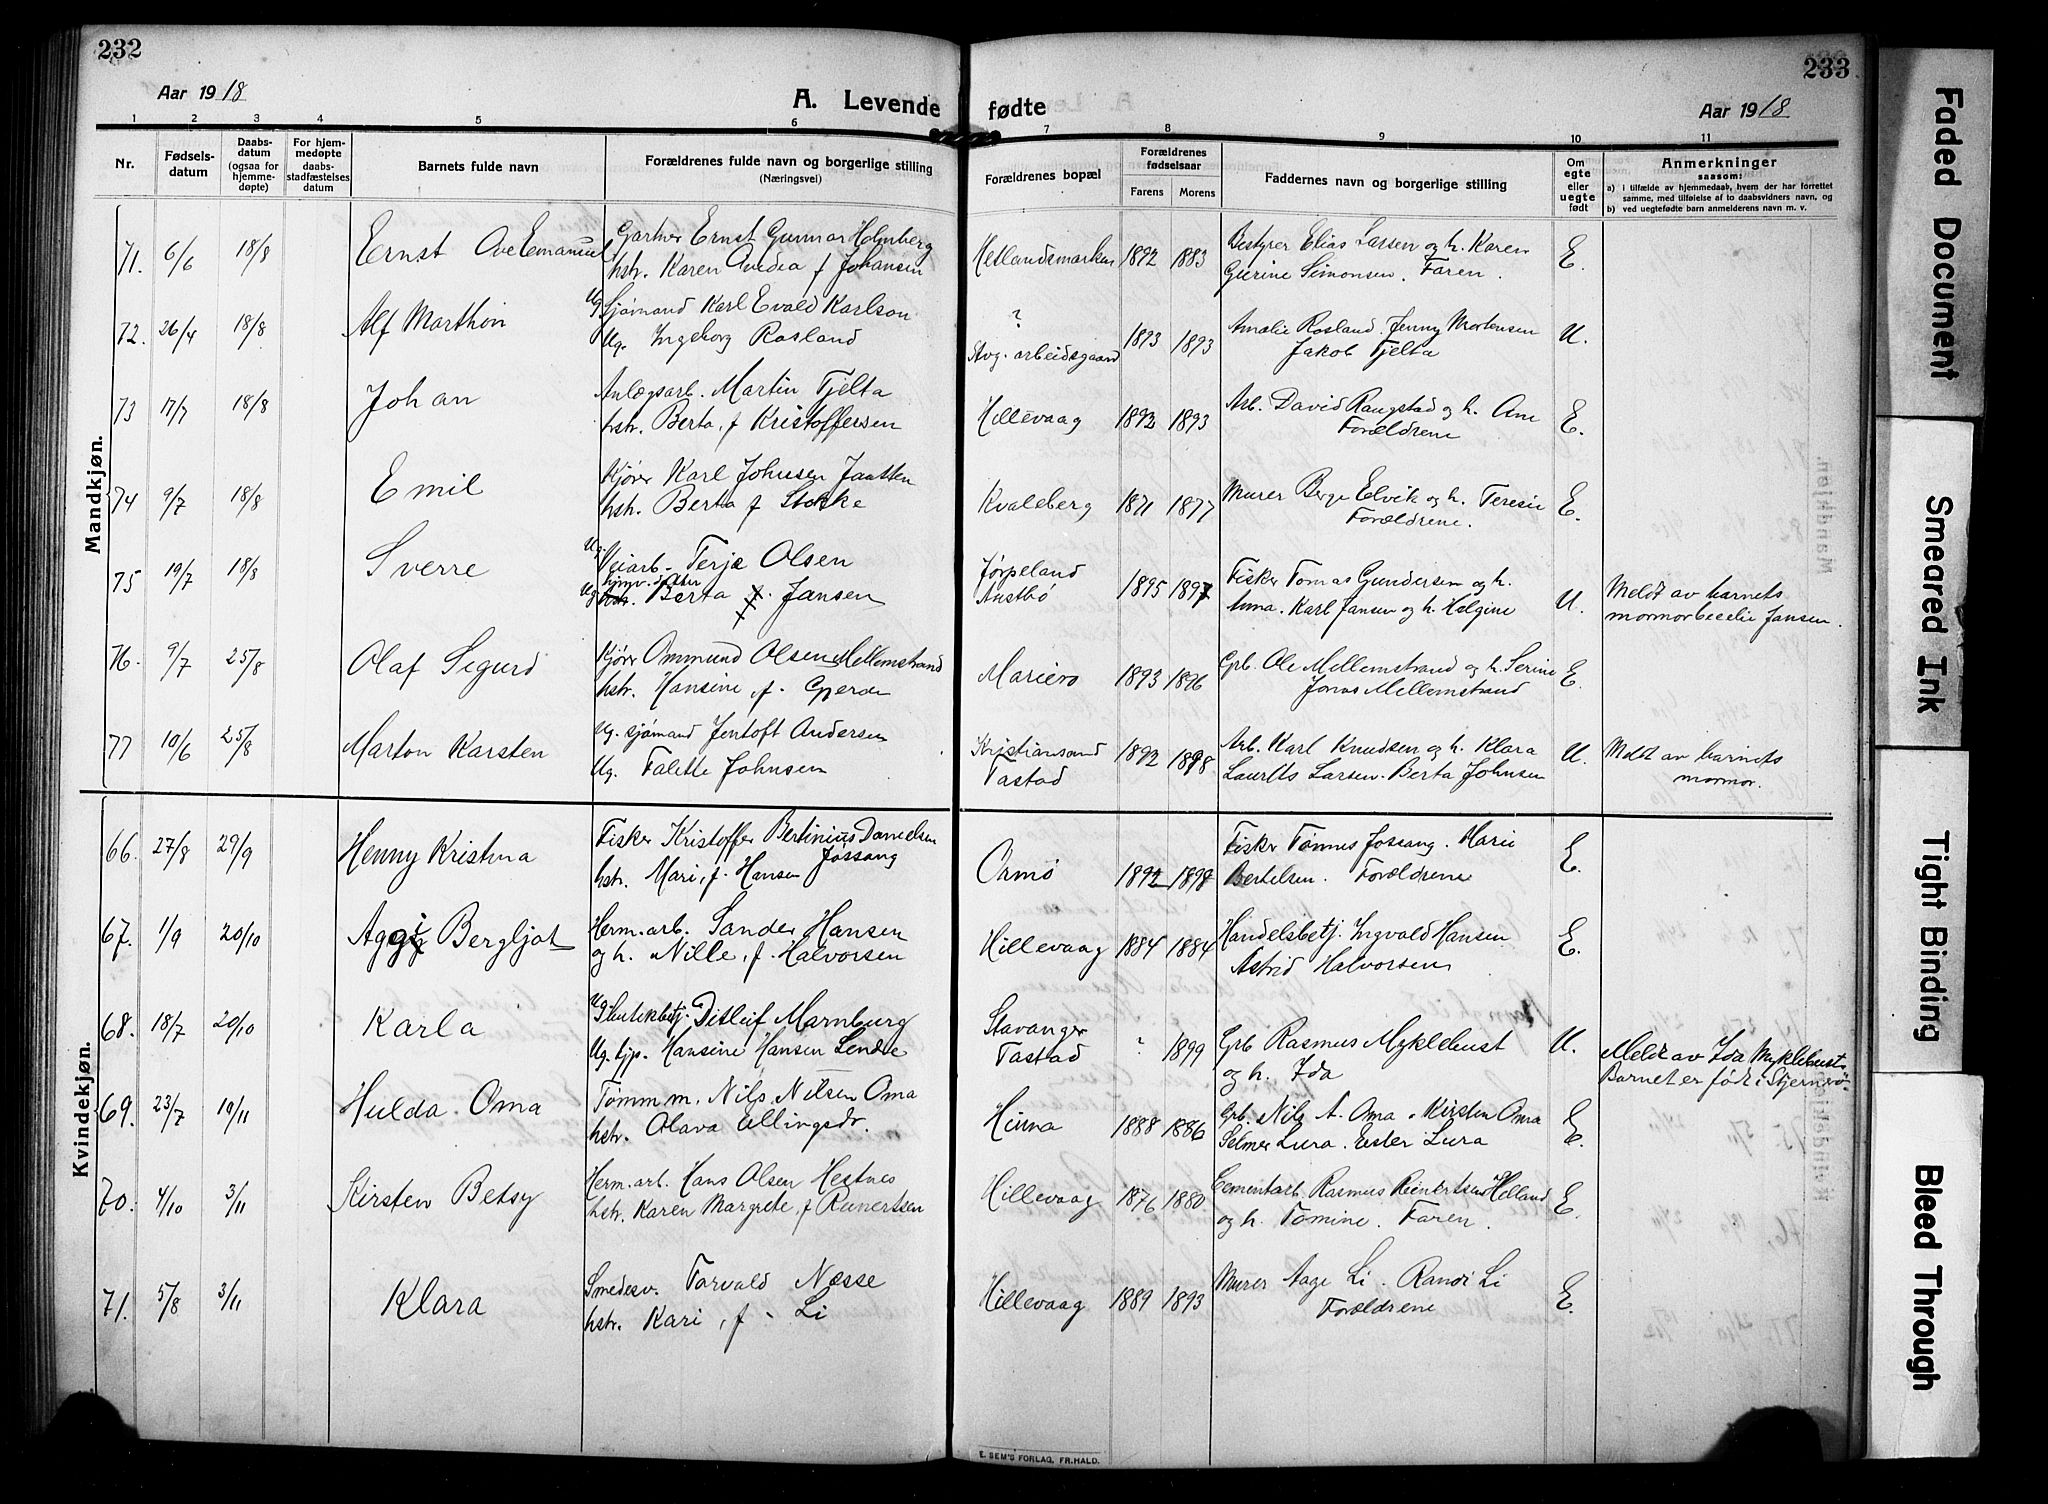 232
233
Aar 1918
A. Levende fødte
Aar 1918
1 2 3 4 5 6 7 8 9 10 11
Nr.
Fødselsdatum
Daabsdatum (ogsaa for hjemmedøpte)
For hjemmedøpte daabsstadfæstelses datum
Barnets fulde navn
Forældrenes fulde navn og borgerlige stilling (Næringsvei)
Forældrenes bopæl
Forældrenes fødselsaar
Farens Morens
Faddernes navn og borgerlige stilling
Om egte eller uegte født
Anmerkninger
saasom:
a) i tilfælde av hjemmedaab, hvem der har forrettet samme, med tilføielse af to daabsvidners navn, og
b) ved uegtefødte barn anmelderens navn m. v.
Mandkjøn.
71. 6/6 18/8 Ernst Ove Emanuel
Gartner Ernst Gunnar Holmberg
hstr. Karen Ovedea f Johansen
Hetlandsmarken 1892 1883
Bestyrer Elias Larsen og h. Karen
Gurine Simonsen. Faren.
E.
72. 26/4 18/8 Alf Marthon
Ug Sjømand Karl Evald Karlson
Ug. Ingeborg Rosland
?
Svg. arbeidsgaard 1893 1893
Amalie Rosland. Jenny Mortensen
Jakob Tjelta
U.
73 17/7 18/8 Johan
Anlægsarb. Martin Tjelta
hstr. Berta, f Kristoffersen
Hillevaag 1892 1893
Arb. David Raugstad og h. Ane
Forældrene
E.
74 9/7 18/8 Emil
Kjører Karl Johnsen Jaatten
hstr. Berta f Stokke
Kvaleberg 1871 1877
Murer Berge Edvik og h. Teresie
Forældrene.
E.
75 19/7 18/8 Sverre
Ug Veiarb. Terje Olsen
Ug hjmv. datter Berta Jansen
Jørpeland
Austbø 1895 1897
Fisker Tomas Gundersen og h.
Anna. Karl Jansen og h. Helgine
U.
Meldt av barnets
mormor Cecelie Jansen.
76. 9/7 25/8 Olaf Sigurd
Kjører Ommund Olsen Mellemstrand
hstr. Hansine, f. Gjerde
Mariero 1893 1896
Grb. Ole Mellemstrand og h. Serine
Jonas Mellemstrand
E.
77 10/6 25/8 Marton Karsten
Ug. sjømand Jentoft Andersen
Ug. Talette Johnsen
Kristiansand
Tastad 1892 1898
Arb. Karl Knudsen og h. Klara
Laurits Larsen. Berta Johnsen
U.
Meldt av barnets
mormor.
Kvindekjøn.
66. 27/8 29/9 Henny Kristina
Fisker Kristoffer Bertinius Danielsen
Jøssang
hstr. Mari, f. Hansen
Ormø 1892 1898
Fisker Tønnes Jøssang. Marie
Bertelsen. Forældrene
E.
67. 1/9 20/10 Aggi Bergljot
Herm. arb. Sander Hansen
og h. Nille, f. Halvorsen
Hillevaag 1884 1884
Handelsbetj. Ingvald Hansen
Astrid Halvorsen
E.
68. 18/7 20/10 Karla
Ug. Ditleif Marnburg
Ug. tjp. Hansine Hansen Lende
Stavanger
Tastad ? 1899
Grb Rasmus Myklebust
og h. Ida
U.
Meldt av Ida Myklebust
Barnet er født i Stjernerø
69. 23/7 10/11 Hulda Oma
Tømm m. Nils Nilsen Oma
hstr. Olava Ellingsdr.
Hinna 1888 1886
Grb. Nils A. Oma. Kirsten Oma
Selmer Lura. Ester Lura
E.
70. 4/10 3/11 Kirsten Betsy
Herm. arb. Hans Olsen Hestnes
hstr. Karen Margrete, f Reinertsen
Hillevaag 1876 1880
Cementarb. Rasmus Reinertsen Helland
og h. Tomine. Faren.
E.
71. 5/8 3/11 Klara
Smedesv. Torvald Næsse
hstr. Kari, f. Li
Hillevaag 1889 1893
Murer Aage Li. Randi Li
Forældrene
E.
E. SEM'S FORLAG, FR.HALD.
Faded Document
Smeared Ink
Tight Binding
Bleed Through